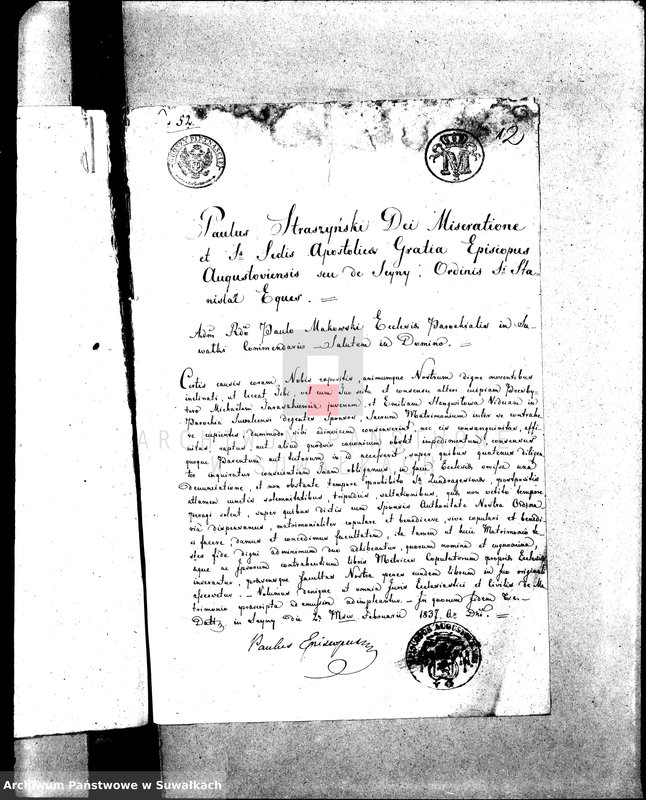 52.
12
M
Paulus Straszyński Dei Miseratione
et Sæ Sedis Apostolicæ Gratia Episcopus
Augustoviensis seu de Seyny. Ordinis Si Sta-
nislai Eques.
Admo Rdo Paulo Makowski Ecclesiæ Parochialis in Su-
wałki Commendario Salutem in Domino.
Certis causis coram Nobis expositis, animumque Nostrum digne moventibus
inclinati, ut liceat Tibi, vel cum Tuo scitu et consensu alteri cuipiam Presby-
tero Michaelem juvenem, et Emiliam Viduam in
Parochia Suvalcensi degentes Sponsos, Sacrum Matrimonium inter se contrahe-
re cupientes dummodo sibi adinvicem consenserint, nec eis consanguinitas, affi-
nitas, raptus, aut aliud quodvis canonicum obstet impedimentum, consensus
quoque Parentum aut tutorum in id accesserit, super quibus quatenus diligen-
ter inquiratur conscientiam Tuam obligamus, in facie Ecclesiæ omissa una
denunciatione, et non obstante tempore prohibito Sæ Quadragesimæ, postpositis
attamen cunctis solemnitatibus, tripudiis, saltationibus, quæ non vetito tempore
peragi solent, super quibus dictis cum Sponsis Authoritate Nostra Ordina-
ria dispensamus, matrimonialiter copulare et benedicere, sive copulari et benedi-
ci facere, damus et concedimus facultatem, ita tamen ut huic Matrimonio te-
stes fide digni adminimum duo adhibeantur, quorum nomina et cognomina
æque ac ipsorum contrahentium libris Metrices Copulatorum propriæ Ecclesiæ
inserantur, præsensque facultas Nostra penes eundem librum in suo originali
asservetur. Volumus denique ut omnia Juris Ecclesiastici et Civilis de Ma-
trimonio præscripta adamussim adimpleantur. In quorum fidem
Datt. in Seyny die 2a Mensis Februarii 1837 Ao Dni.
Paulus Episcopus
Archiwum Państwowe w Suwałkach